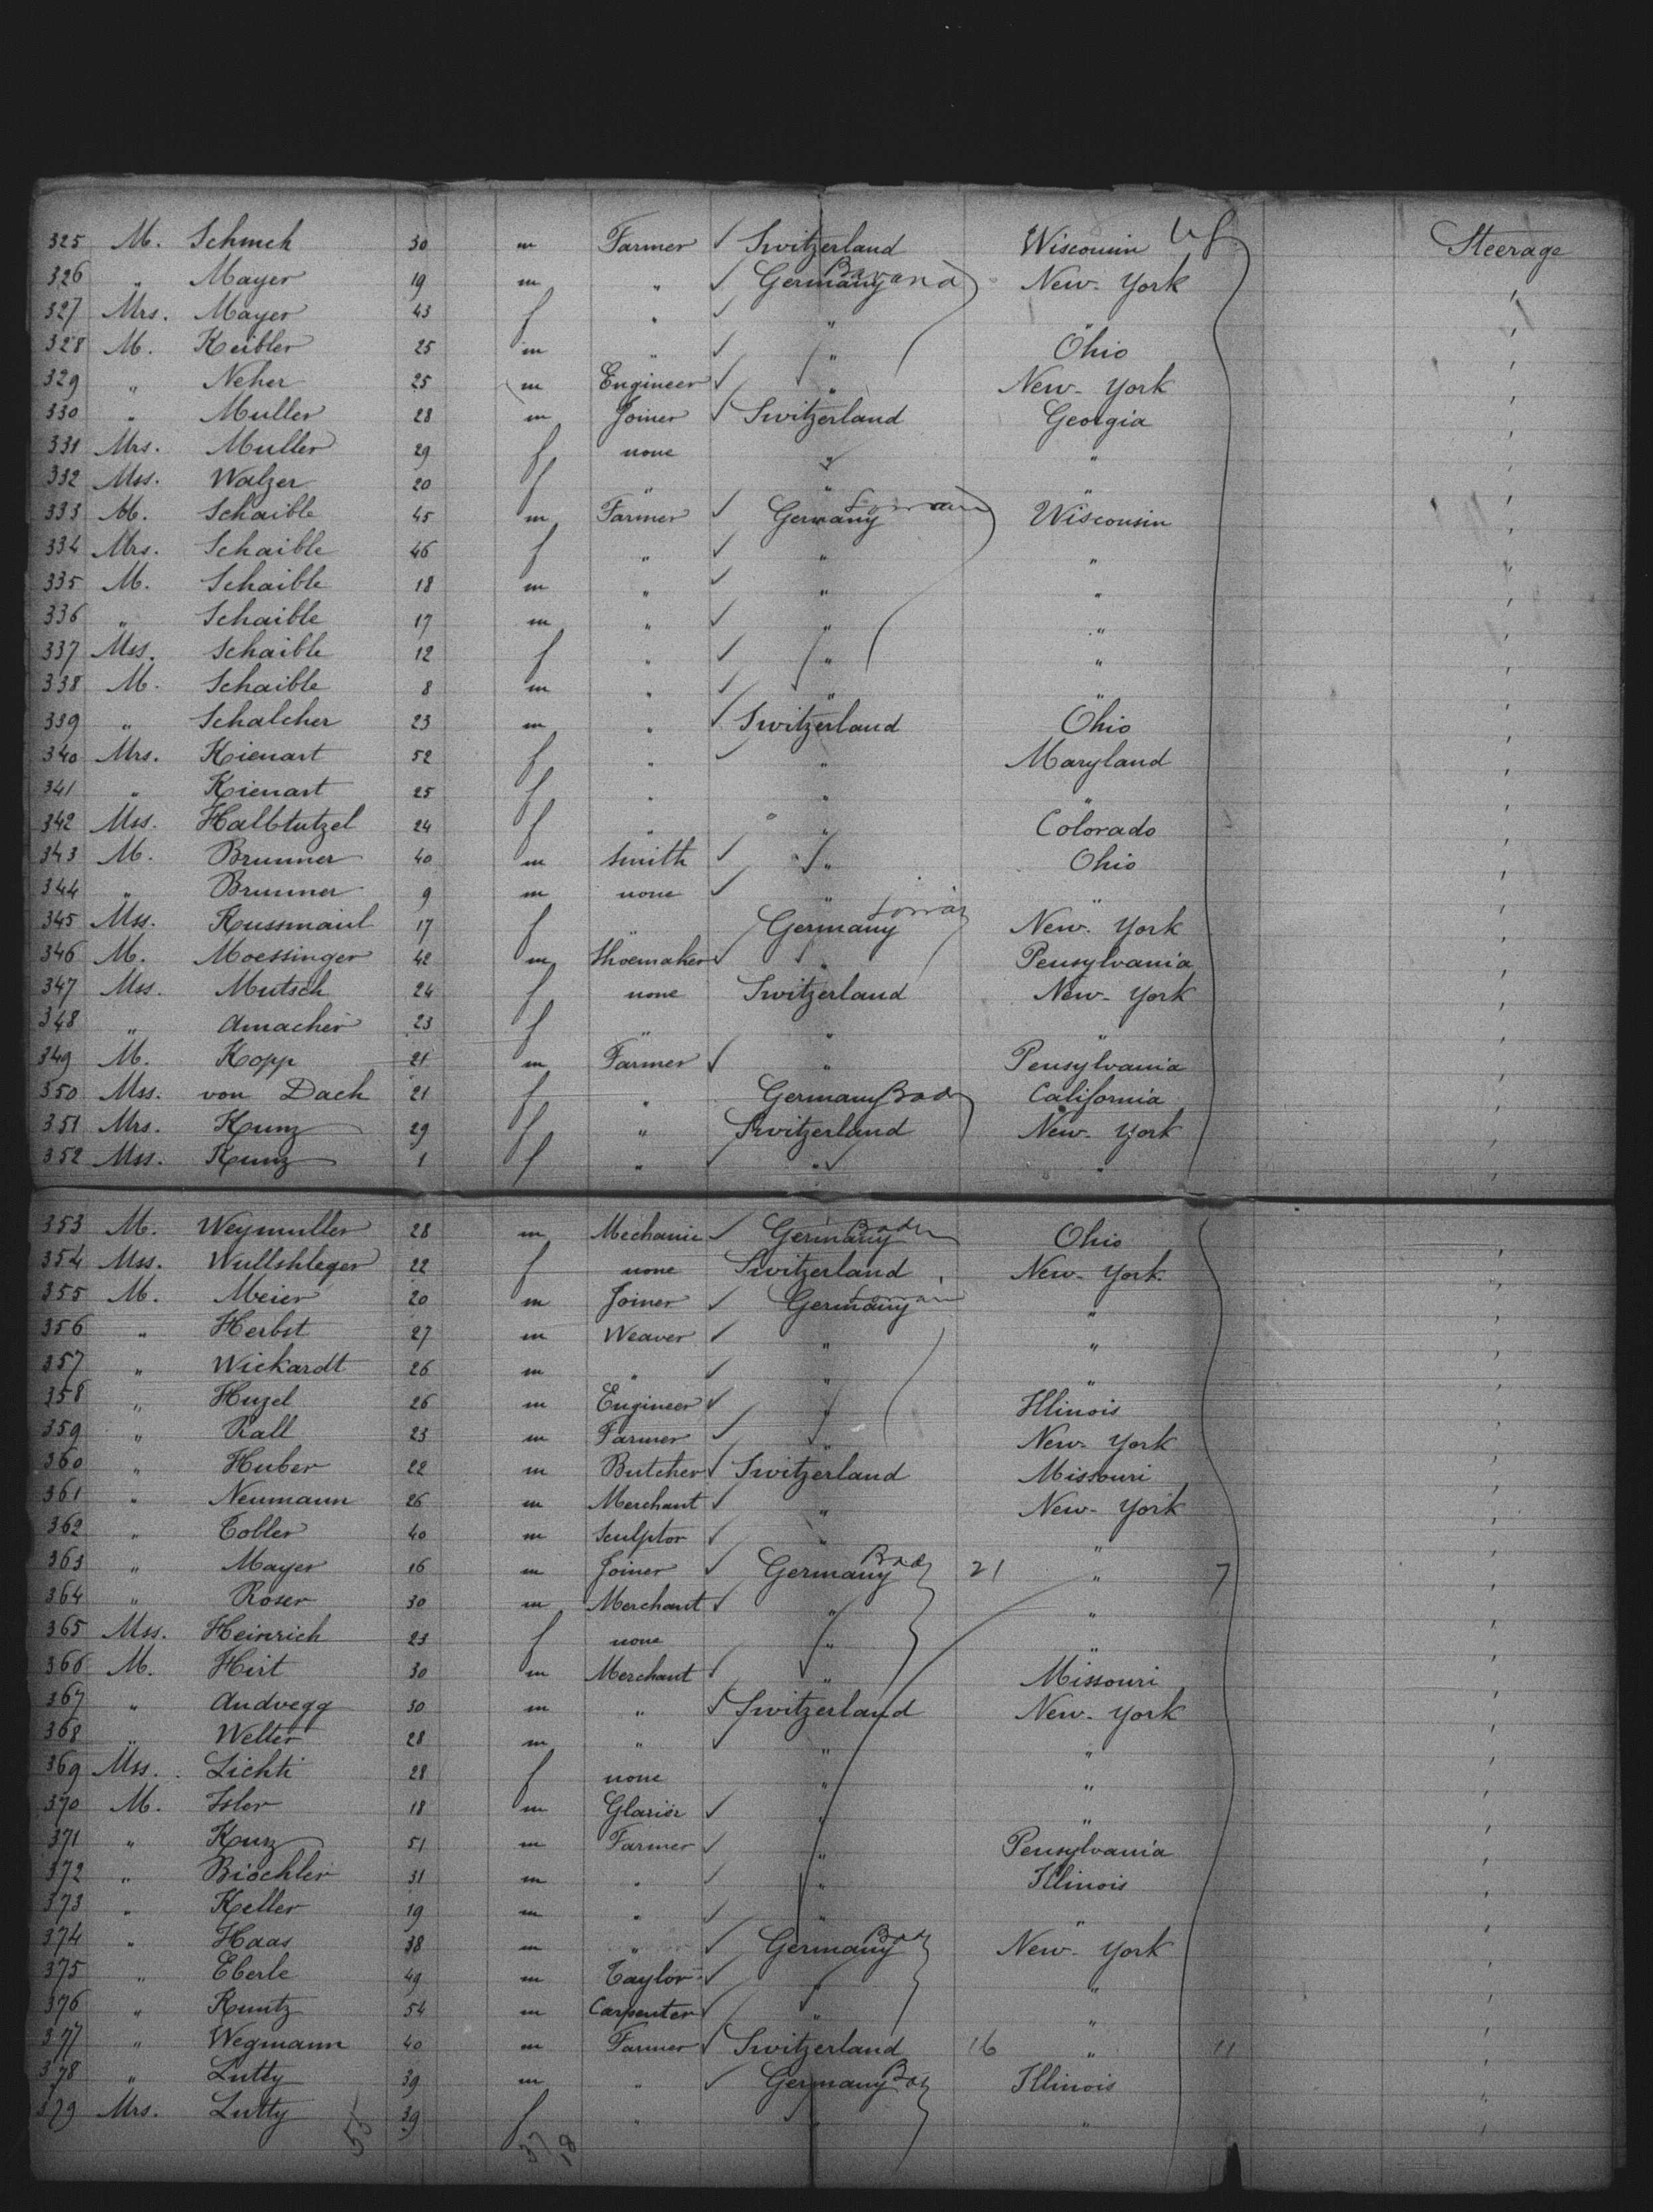 325 M. Schmeh 30 m Farmer ✓ Switzerland Wisconsin Steerage
326 " Mayer 19 m " ✓ Germany New-York '
327 Mrs. Mayer 43 f " ✓ " " '
328 M. Keibler 25 m " ✓ " Ohio '
329 " Neher 25 m Engineer ✓ " New-York '
330 " Muller 28 m Joiner ✓ Switzerland Georgia '
331 Mrs. Muller 29 f none " " '
332 Mss. Walzer 20 f " " " '
333 M. Schaible 45 m Farmer ✓ Germany Wisconsin '
334 Mrs. Schaible 46 f " ✓ " " '
335 M. Schaible 18 m " ✓ " " '
336 " Schaible 17 m " ✓ " " '
337 Mss. Schaible 12 f " ✓ " " '
338 M. Schaible 8 m " ✓ " " '
339 " Schalcher 23 m " ✓ Switzerland Ohio '
340 Mrs. Kienart 52 f " ✓ " Maryland '
341 " Kienart 25 f " " " '
342 Mss. Halbtutzel 24 f " " Colorado '
343 M. Brunner 40 m Smith ✓ " Ohio '
344 " Brunner 9 m none ✓ " " '
345 Mss. Kussmaul 17 f " Germany New-York '
346 M. Moessinger 42 m Shoemaker ✓ " Pensylvania '
347 Mss. Mutsch 24 f none Switzerland New-York '
348 " Amacher 23 f " " " '
349 M. Kopp 21 m Farmer ✓ " Pensylvania '
350 Mss. von Dach 21 f " Germany Bad California '
351 Mrs. Kunz 29 f " Switzerland New-York '
352 Mss. Kunz 1 f " " " '
353 M. Weymuller 28 m Mechanic ✓ Germany Bad Ohio '
354 Mss. Wullshleger 22 f none Switzerland New-York '
355 M. Meier 20 m Joiner ✓ Germany " '
356 " Herbst 27 m Weaver ✓ " " '
357 " Wickardt 26 m " ✓ " " '
358 " Huzel 26 m Engineer ✓ " Illinois '
359 " Rall 23 m Farmer ✓ " New-York '
360 " Huber 22 m Butcher ✓ Switzerland Missouri '
361 " Neumann 26 m Merchant ✓ " New-York '
362 " Tobler 40 m Sculptor ✓ " " '
363 " Mayer 16 m Joiner ✓ Germany Bad 21 " 7 '
364 " Roser 30 m Merchant ✓ " " '
365 Mss. Heinrich 23 f none " " '
366 M. Hirt 30 m Merchant ✓ " Missouri '
367 " Andvegg 30 m " ✓ Switzerland New-York '
368 " Welter 28 m " ✓ " " '
369 Mss. Lichti 28 f none " " '
370 M. Isler 18 m Glarier ✓ " " '
371 " Kunz 51 m Farmer ✓ " Pensylvania '
372 " Biochler 31 m " ✓ " Illinois '
373 " Keller 19 m " ✓ " " '
374 " Haas 38 m " ✓ Germany Bad New-York '
375 " Eberle 49 m Taylor ✓ " " '
376 " Kuntz 54 m Carpenter ✓ " " '
377 " Wegmann 40 m Farmer ✓ Switzerland 16 " 11 '
378 " Lutty 39 m " ✓ Germany Bad Illinois '
379 Mrs. Lutty 39 f " " " '
55 37 18